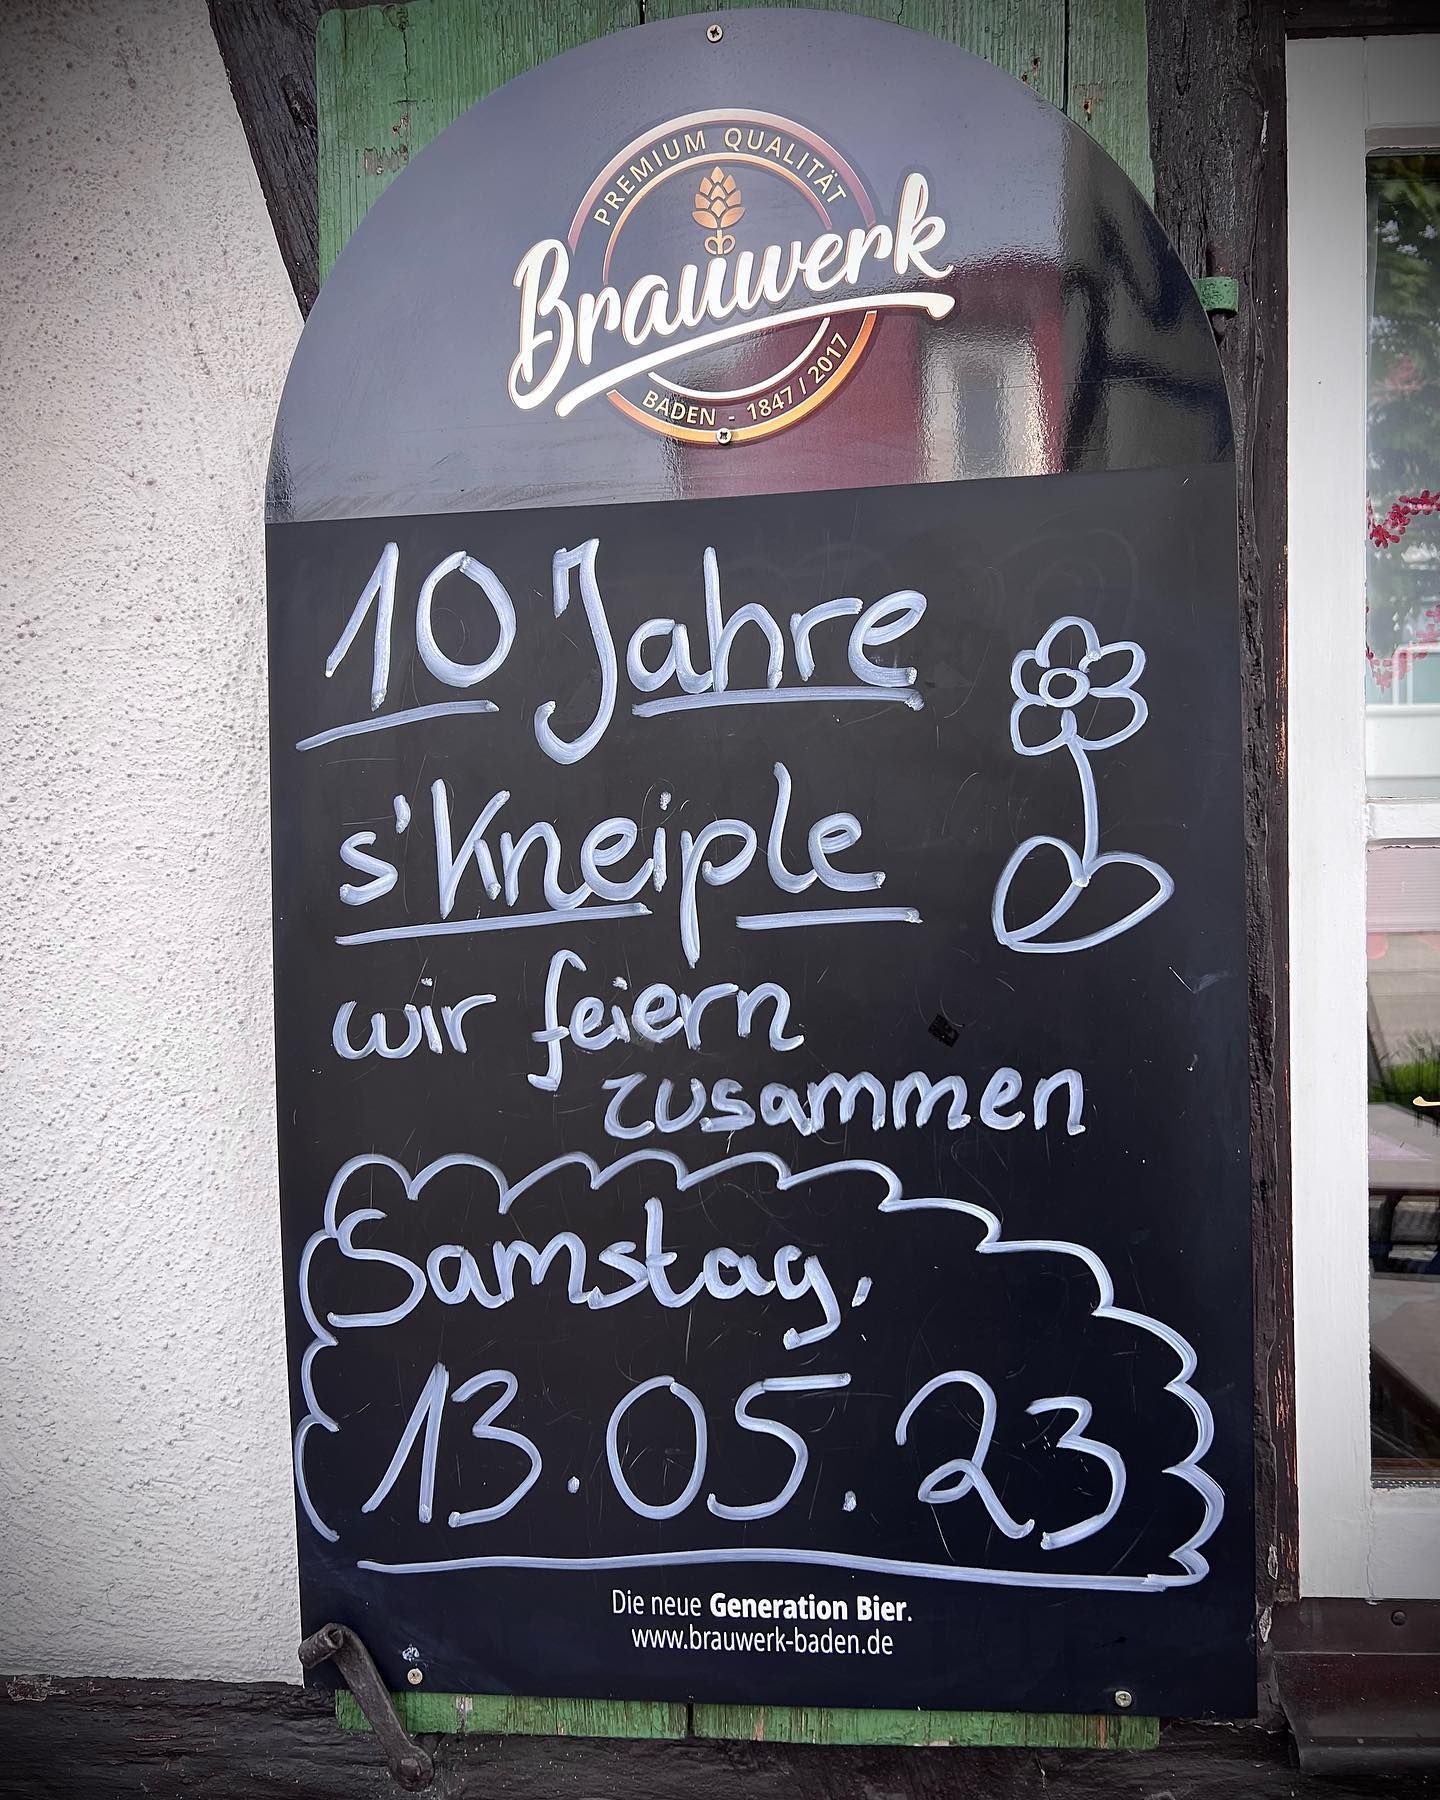 PREMIUM QUALITÄT
Brauwerk
BADEN - 1847 / 2017
10 Jahre
s'Kneiple
wir feiern
zusammen
Samstag,
13.05.23
Die neue Generation Bier.
www.brauwerk-baden.de